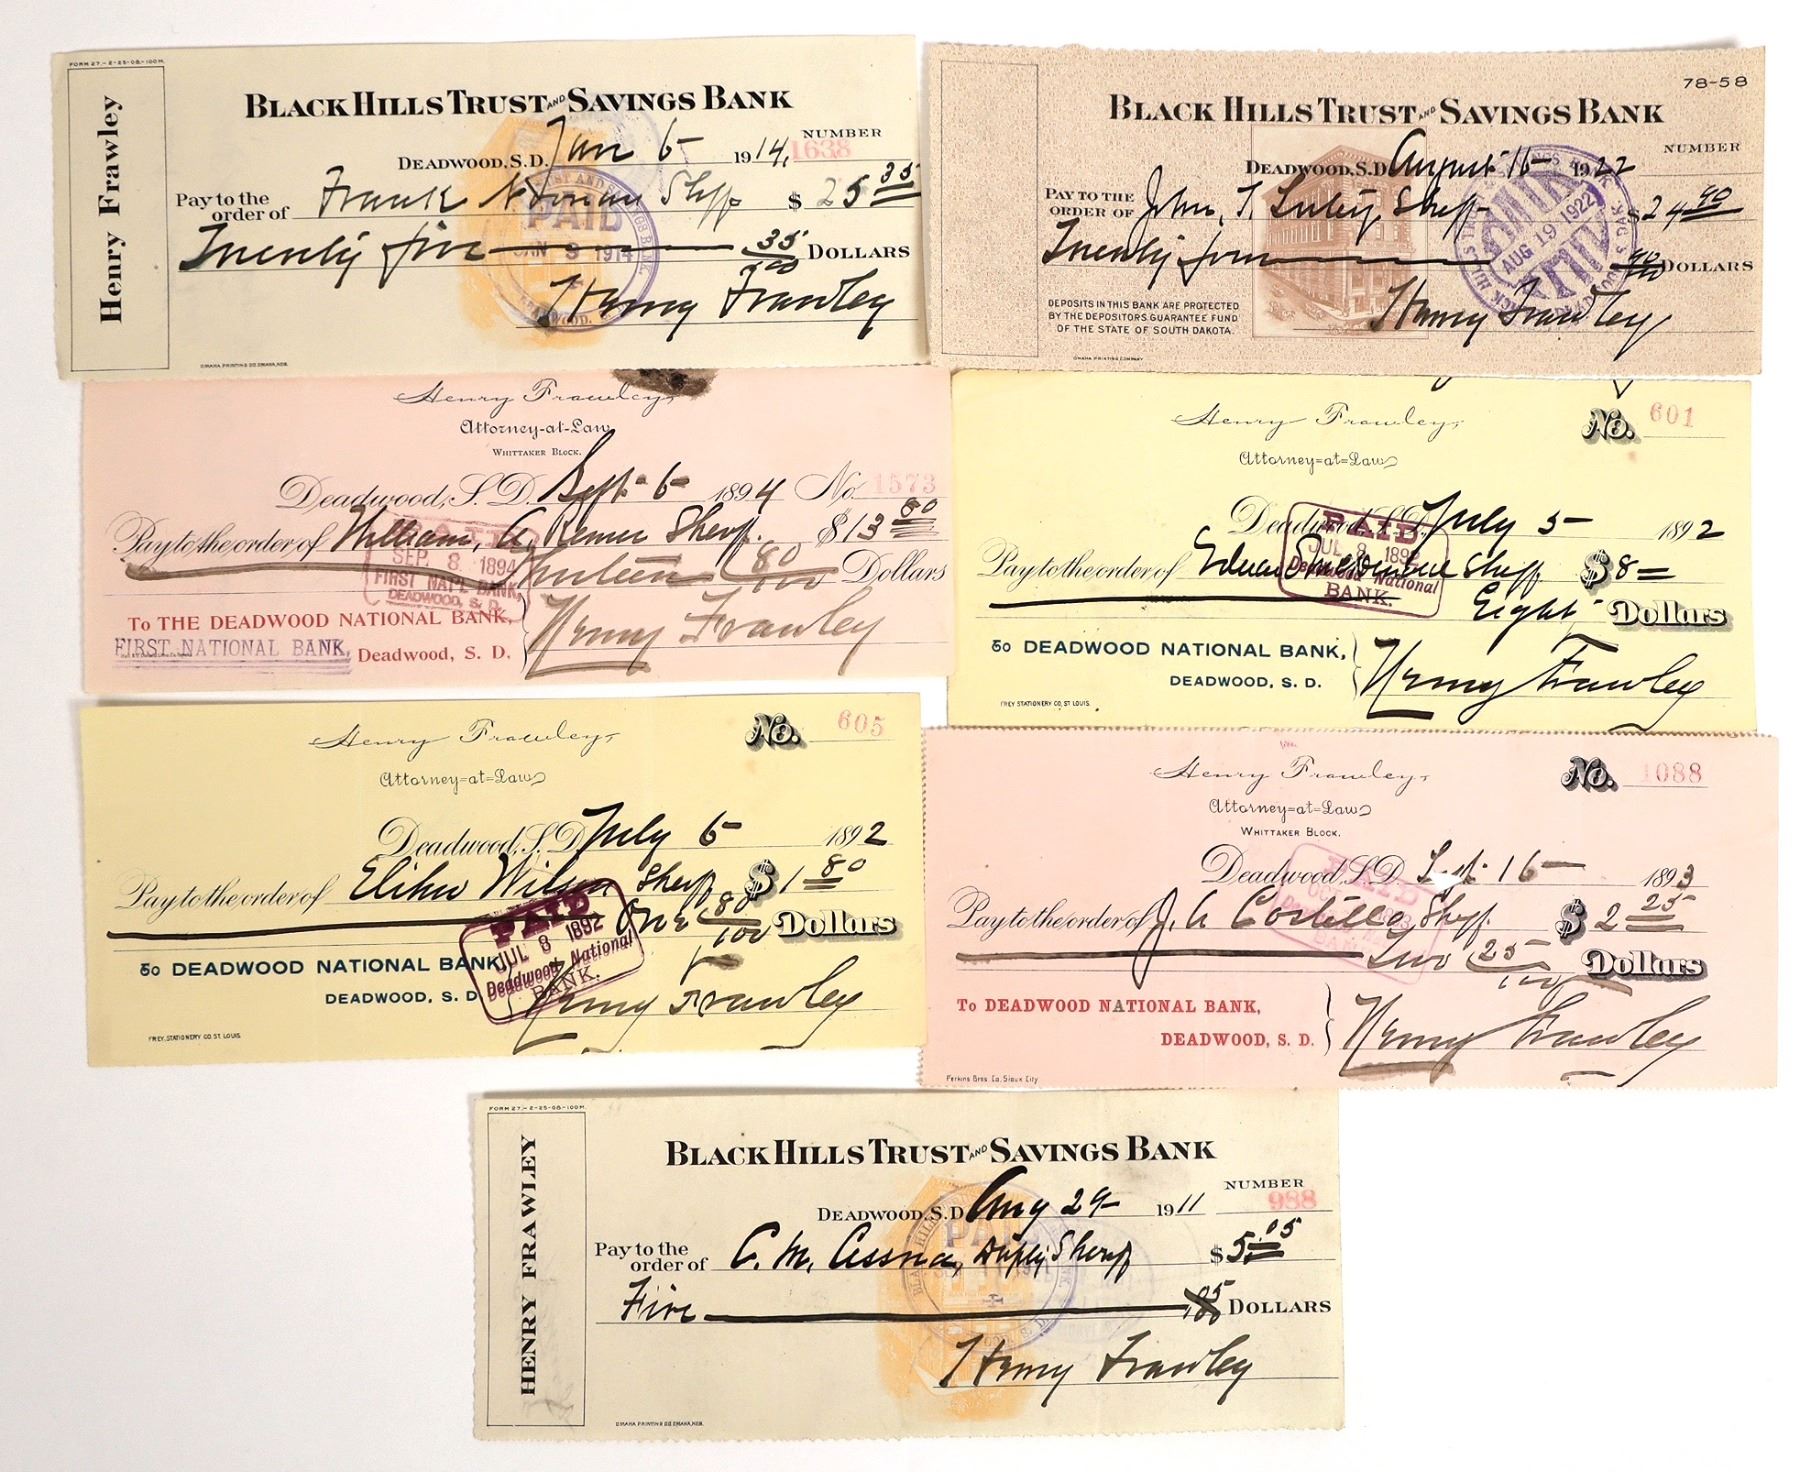 FORM 27.-2-25-08-100M.
Henry Frawley
BLACK HILLS TRUST AND SAVINGS BANK
NUMBER
DEADWOOD, S.D. Jan 6 1914. 1638
Pay to the order of Frank Sheff $25 35
Twenty five 35/100 DOLLARS
PAID
JAN 9 1914
Henry Frawley
OMAHA PRINTING CO OMAHA, NEB.
78-58
BLACK HILLS TRUST AND SAVINGS BANK
NUMBER
DEADWOOD, S.D. August 16 1922
PAY TO THE ORDER OF John T. Sheff $24 90
Twenty four 90/100 DOLLARS
AUG 19 1922
DEPOSITS IN THIS BANK ARE PROTECTED
BY THE DEPOSITORS GUARANTEE FUND
OF THE STATE OF SOUTH DAKOTA.
Henry Frawley
OMAHA PRINTING COMPANY
Henry Frawley,
Attorney-at-Law
WHITTAKER BLOCK.
Deadwood, S.D. Sept 6 1894 No. 1573
Pay to the order of William, A Remer Sheff. $13 80
Thirteen 80/100 Dollars
PAID
SEP. 8 1894
FIRST NAT'L BANK,
DEADWOOD, S. D.
To THE DEADWOOD NATIONAL BANK,
FIRST NATIONAL BANK, Deadwood, S. D.
Henry Frawley
Henry Frawley,
No. 601
Attorney=at=Law
Deadwood, S.D. July 5 1892
Pay to the order of Sheff $8
Eight Dollars
PAID
JUL 8 1892
Deadwood National
BANK.
To DEADWOOD NATIONAL BANK,
DEADWOOD, S. D.
Henry Frawley
FREY STATIONERY CO. ST LOUIS.
Henry Frawley,
No. 605
Attorney=at=Law
Deadwood, S.D. July 6 1892
Pay to the order of Elihu Wilson Sheff $1 80
One 80/100 Dollars
PAID
JUL 8 1892
Deadwood National
BANK.
To DEADWOOD NATIONAL BANK,
DEADWOOD, S. D.
Henry Frawley
FREY STATIONERY CO. ST LOUIS.
Henry Frawley,
No. 1088
Attorney=at=Law
WHITTAKER BLOCK.
Deadwood, S.D. Sept 16 1893
Pay to the order of J. A Costello Sheff. $2 25
Two 25/100 Dollars
To DEADWOOD NATIONAL BANK,
DEADWOOD, S. D.
Henry Frawley
Perkins Bros. Co. Sioux City
FORM 27.-2-25-08-100M.
HENRY FRAWLEY
BLACK HILLS TRUST AND SAVINGS BANK
NUMBER
DEADWOOD, S.D. Aug 29 1911 988
Pay to the order of C. M. Cessna, Sheriff $5.05
Five .05/100 DOLLARS
PAID
Henry Frawley
OMAHA PRINTING CO OMAHA, NEB.